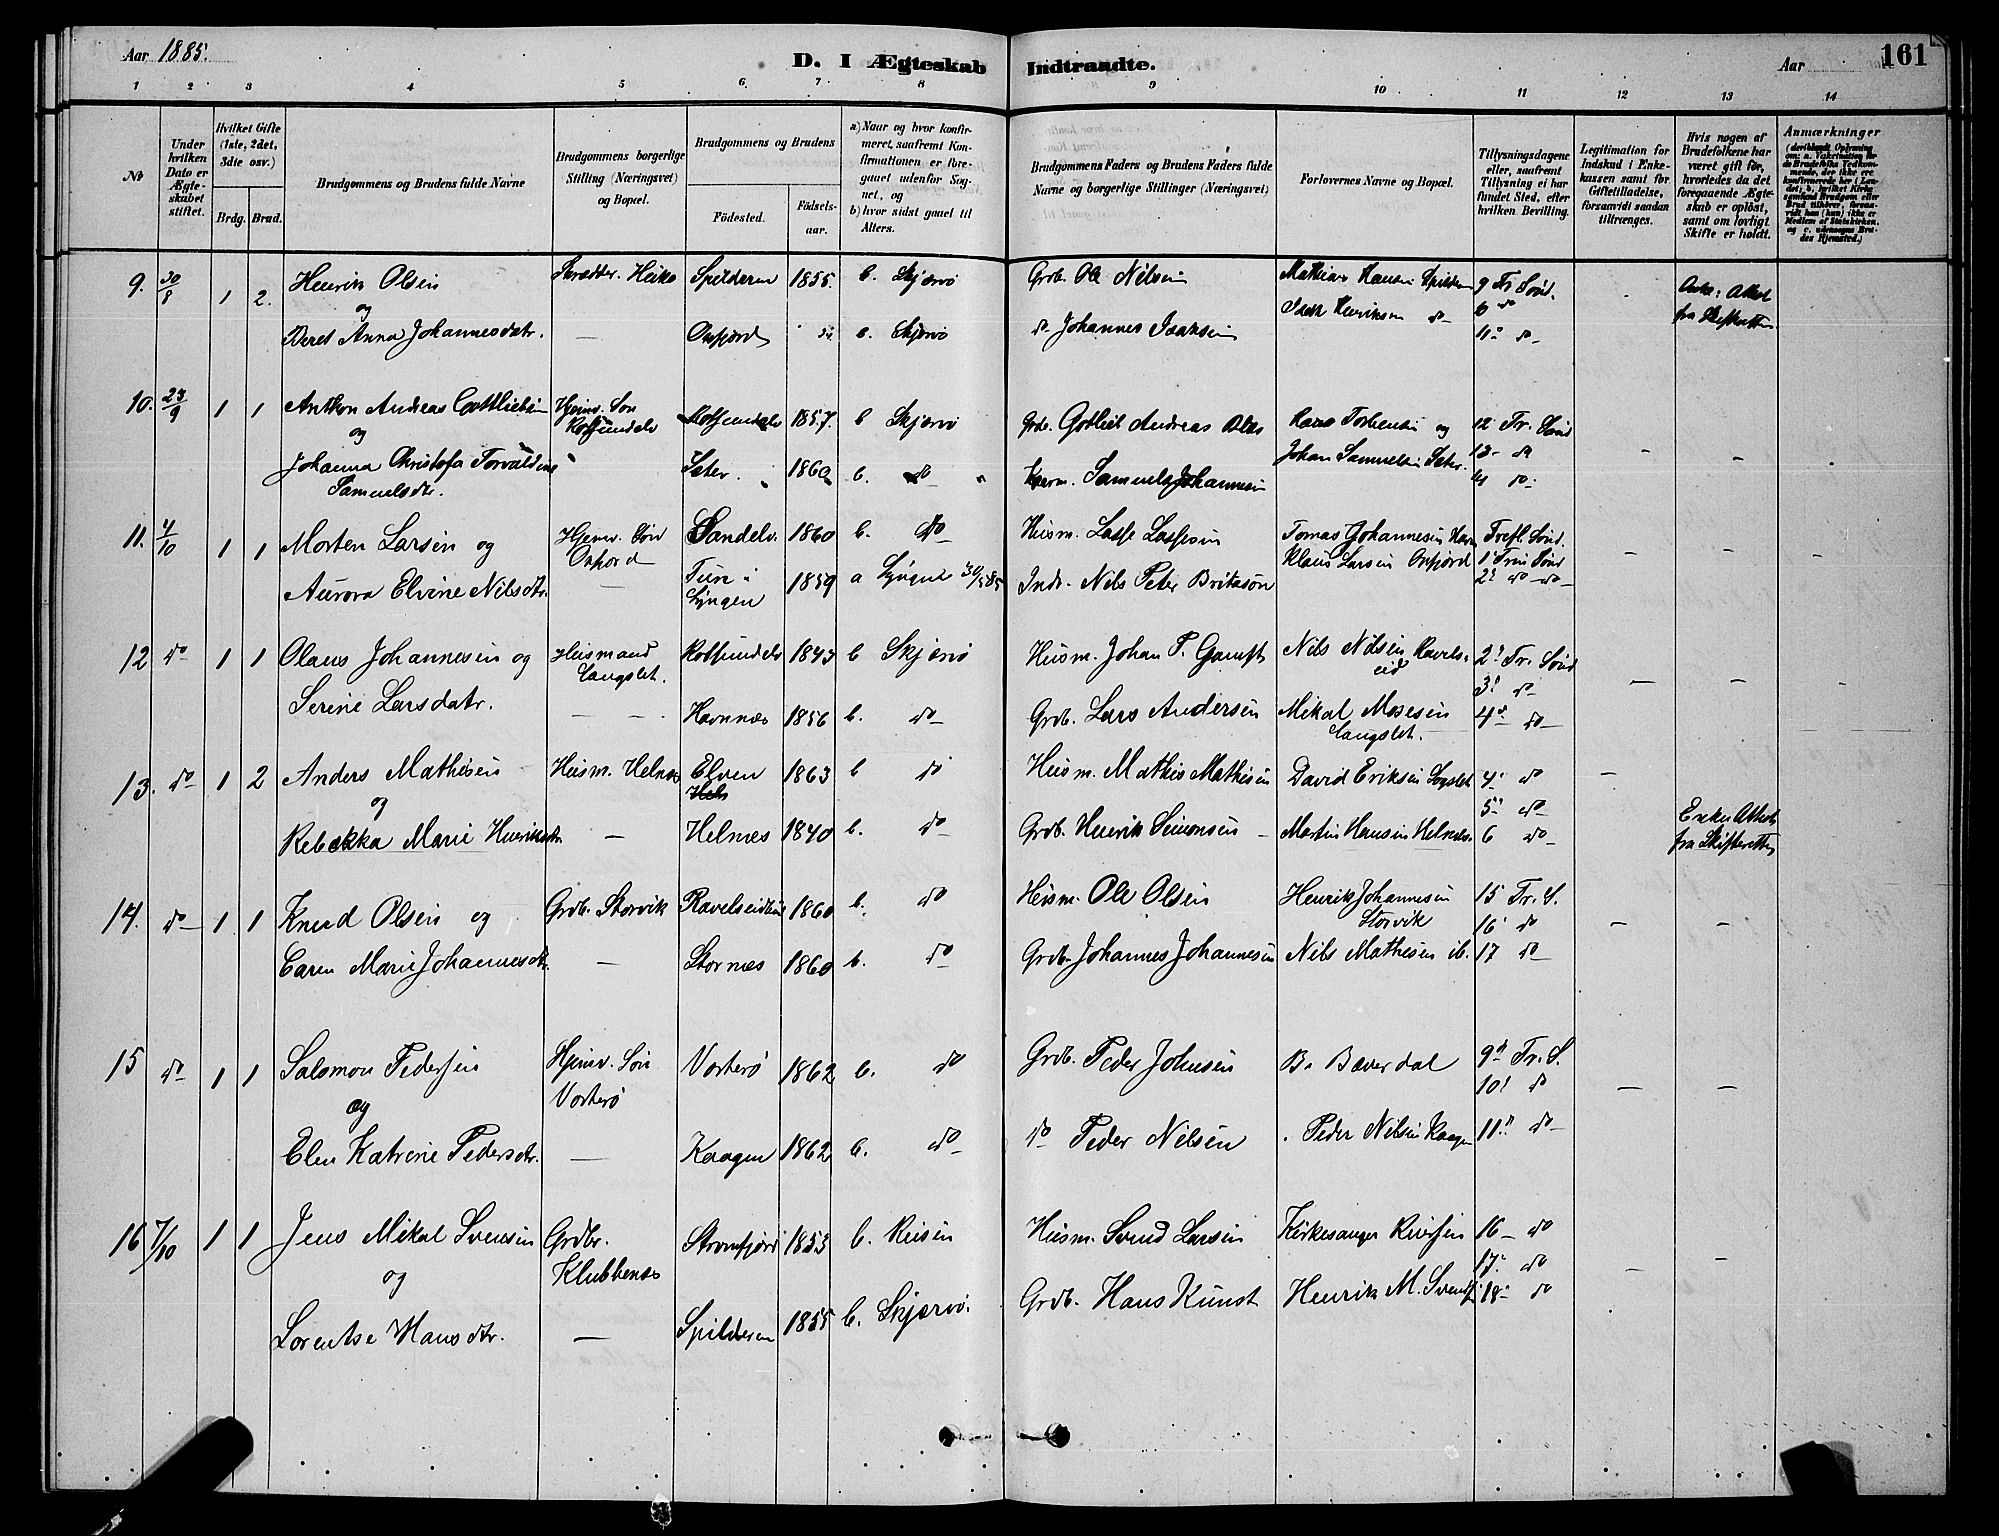 Aar 1885.
D. I Ægteskab Indtraadte.
Aar
161
1 2 3 4 5 6 7 8 9 10 11 12 13 14
No
Under hvilken Dato er Ægteskabet stiftet.
Hvilket Gifte (1ste, 2det, 3die osv.)
Brdg. Brud.
Brudgommens og Brudens fulde Navne
Brudgommens borgerlige Stilling (Næringsvei) og Bopæl.
Brudgommens og Brudens
Födested. Födselsaar.
a) Naar og hvor konfirmeret, saafremt Konfirmationen er foregaaet udenfor Sognet, og
b) hvor sidst gaaet til Alters.
Brudgommens Faders og Brudens Faders fulde Navne og borgerlige Stillinger (Næringsvei)
Forlovernes Navne og Bopæl.
Tillysningsdagene eller, saafremt Tillysning ei har fundet Sted, efter hvilken Bevilling.
Legitimation for Indskud i Enkekassen samt for Giftetilladelse, forsaavidt saadan tiltrænges.
Hvis nogen af Brudefolkene har været gift för, hvorledes da det foregaaende Ægteskab er oplöst, samt om lovligt Skifte er holdt.
Anmærkninger
9. 30/8 1 2. Henrik Olsen Skrædder. Heiko Spilderen 1855. b. Skjervö Grdb. Ole Nilsen Mathias Hansen Spilderen 9 Tr. Sönd.
og Isak Henriksen do 6 do fra Skifteretten
Beret Anna Johannesdatr. Oxfjord b. Skjervö do Johannes Isaksen 11 do
10. 1 1 Anthon Andreas Gottliebsen Hjemv. Sön Rotsundelv Rotsundelv 1857. b Skjervö Grdb. Gotlieb Andreas Hans og 12 Tr. Sönd
og Johan Samuelsen 13 do
Johanna Christofa Torvaldine Samuelsdtr. 1860 b. do Samuel Johannesen 14 do
11. 4/10 1 1 Morten Larsen og Hjemv. Sön Oxfjord Sandelv. 1860 b. do Husm. Lasse Lassesen Tomas Johannesen Trefl. Sönd.
Klaus Larsen Oxfjord 1 Trin Sönd
Aurora Elvine Nilsdtr. — i Lyngen 1859 a Lyngen Indr. Nils Peter Britasön 2 do do
12 do 1 1 Olaus Johannesen og Husmand Langslet. Rotsundelv 1843 b Skjervö Husm. Johan P. Nils Nilsen Ravelseid 2 Tr. Sönd
3 do
Serine Larsdatr. — Havnnæs 1856 b. do Grdb. Lars Andersen Mikal Mosesen Langslet. 4 do
13. do 1 2 Anders Mathisen Husm. Helnæs Elven 1863 b do Husm. Mathis Mathisen David Eriksen 4 do
og 5 do
Rebekka Marie Henriksdtr — Helnæs 1840 b. do Grdb. Henrik Simonsen Martin Hansen Helnæs 6 do Enke Attest fra Skifteretten
14. do 1 1 Knud Olsen og Grdb. Storvik 1860 b. do Husm. Ole Olsen Henrik Johannesen Storvik 15 Tr. S.
16 do
Caren Marie Johannesdtr. — Stornæs 1860 b. do Grdb. Johannes Johannesen Nils Mathisen ib. 17 do
15 do 1 1 Salomon Pedersen Hjemv. Sön Vorterö Vorterö 1862 b. do Grdb. Peder Johnsen B. Bæverdal 9 Tr. S.
og 10 do
Elen Katrine Pedersdtr. — Kaagen 1862 b. do do Peder Nilsen Peder Nilsen Kaagen 11 do
16 7/10 1 1 Jens Mikal Svensen Grdbr. Klubbenæs Straumfjord 1853 b. Reisen Husm. Svend Larsen Kirkesanger 16 do
og 17 do
Lorentse Hansdtr. — Spilderen 1855 b. Skjervö. Grdb. Hans Kunst Henrik M. Svendsen 18 do